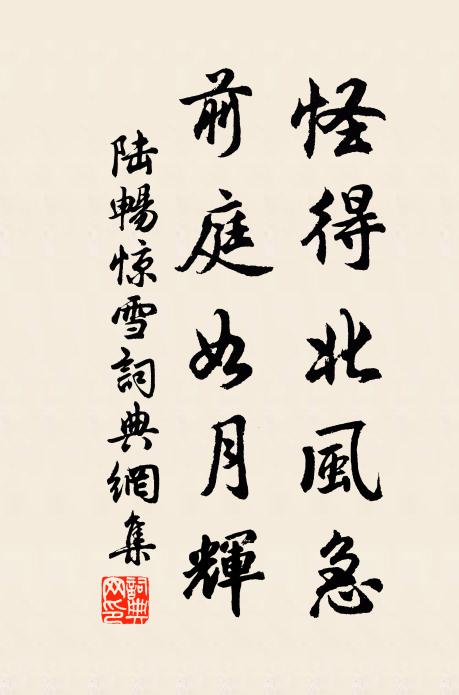 怪得北風急
前庭如月輝
陸暢惊雪詞典網集
詞典网印